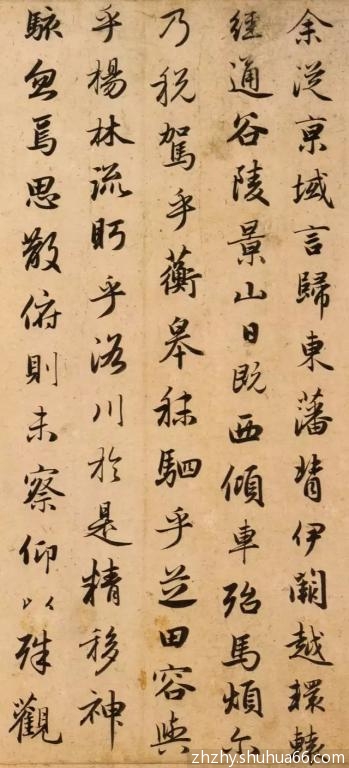 余從京域言歸東藩背伊闕越轘轅
經通谷陵景山日既西傾車殆馬煩尔
乃税駕乎蘅皋秣駟乎芝田容與
乎楊林流眄乎洛川於是精移神
駭忽焉思散俯則未察仰以殊觀
zhzhy.shuhua66.com